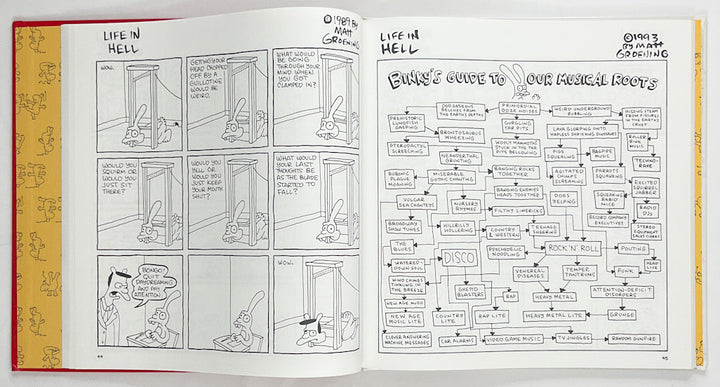 LIFE IN
HELL
©1989 BY
MATT
GROENING
WOW.
GETTING YOUR
HEAD CHOPPED
OFF BY A
GUILLOTINE
WOULD BE
WEIRD.
WHAT WOULD
BE GOING
THROUGH YOUR
MIND WHEN
YOU GOT
CLAMPED IN?
WOULD YOU
SQUIRM OR
WOULD YOU
JUST SIT
THERE?
WOULD YOU
YELL OR
WOULD YOU
JUST KEEP
YOUR MOUTH
SHUT?
WHAT WOULD
YOUR LAST
THOUGHTS BE
AS THE BLADE
STARTED TO
FALL?
BONGO!
QUIT
DAYDREAMING
AND PAY
ATTENTION.
WOW.
44
LIFE IN
HELL
©1993
BY MATT
GROENING
BINKY'S GUIDE TO YOUR MUSICAL ROOTS
ODD GASEOUS
BELCHES FROM
THE EARTH'S DEPTHS
PRIMORDIAL
OOZE NOISES
WEIRD UNDERGROUND
BUBBLING
HISSING STEAM
FROM FISSURES
IN THE EARTH'S
CRUST
PREHISTORIC
LUNGFISH
GASPING
GURGLING
TAR PITS
LAVA GLOPPING ONTO
HAPLESS SHRIEKING DINOSAURS
BRONTOSAURUS
WHEEZING
PTERODACTYL
SCREECHING
WOOLY MAMMOTHS
STUCK IN THE TAR
PITS BELLOWING
PIGS
SQUEALING
BAGPIPE
MUSIC
ROLLER
RINK
NEANDERTHAL
GRUNTING
TECHNO-
RAVE
BUBONIC
PLAGUE
MOANING
MISERABLE
GOTHIC CHANTING
BANGING ROCKS
TOGETHER
AGITATED
CHIMPS
SCREAMING
PARROTS
SQUAWKING
EXCITED
SQUIRREL
JABBER
VULGAR
SEA CHANTEYS
NURSERY
RHYMES
BANGING ENEMIES
HEADS TOGETHER
DOGS
YELPING
SQUEAKING
RABID
MICE
FILTHY LIMERICKS
RADIO
DJS
BROADWAY
SHOW TUNES
HILLBILLY
HOLLERING
COUNTRY
& WESTERN
TEENAGE
SNEERING
RECORD COMPANY
EXECUTIVES
STEREO
EQUIPMENT
SALES CLERKS
THE
BLUES
DISCO
PSYCHEDELIC
NOODLING
ROCK 'N' ROLL
POUTING
WATERED-
DOWN SOUL
VENEREAL
DISEASES
TEMPER
TANTRUMS
PUNK
WIND CHIMES
TINKLING IN
THE BREEZE
GHETTO
BLASTERS
RAP
HEAVY METAL
ATTENTION-DEFICIT
DISORDERS
NEW AGE MUSIC
NEW AGE
MUSIC LITE
COUNTRY
LITE
RAP LITE
HEAVY METAL LITE
GRUNGE
CLEVER ANSWERING
MACHINE MESSAGES
CAR ALARMS
VIDEO GAME MUSIC
TV JINGLES
RANDOM GUNFIRE
45